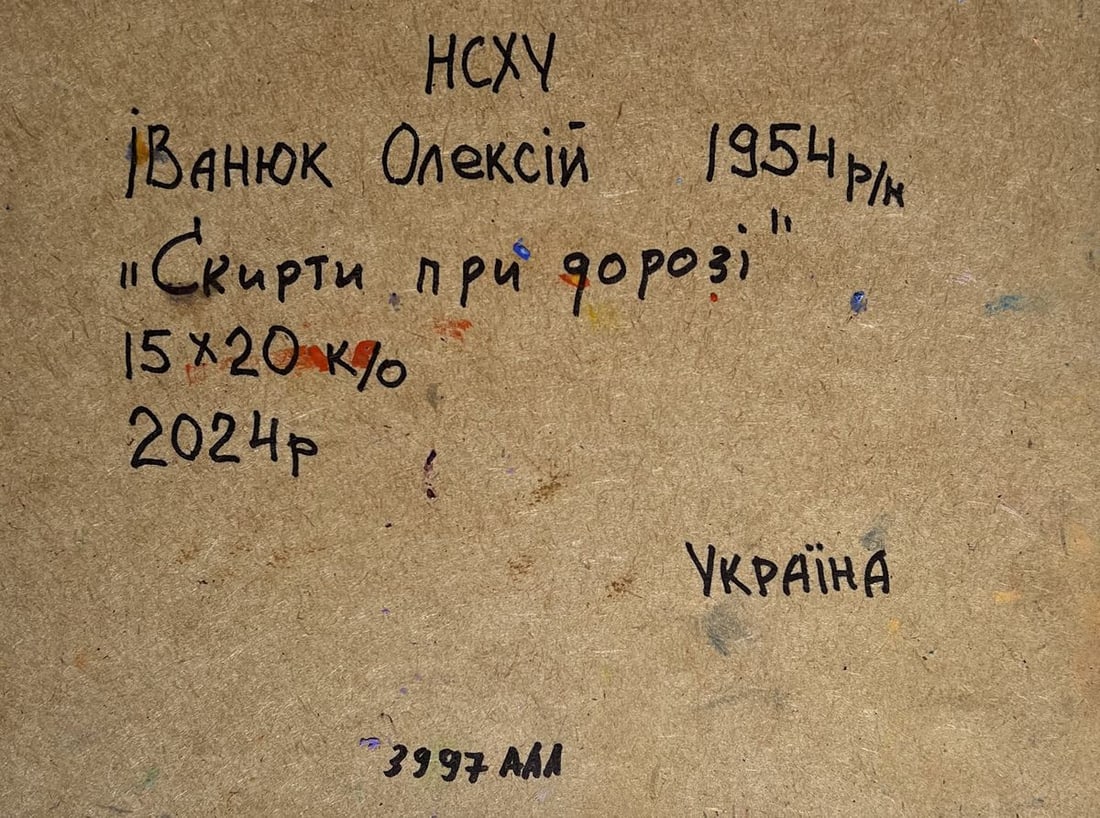 НСХУ
Іванюк Олексій 1954 р/н
"Скирти при дорозі"
15х20 к/о
2024р
Україна
3997 АЛЛ